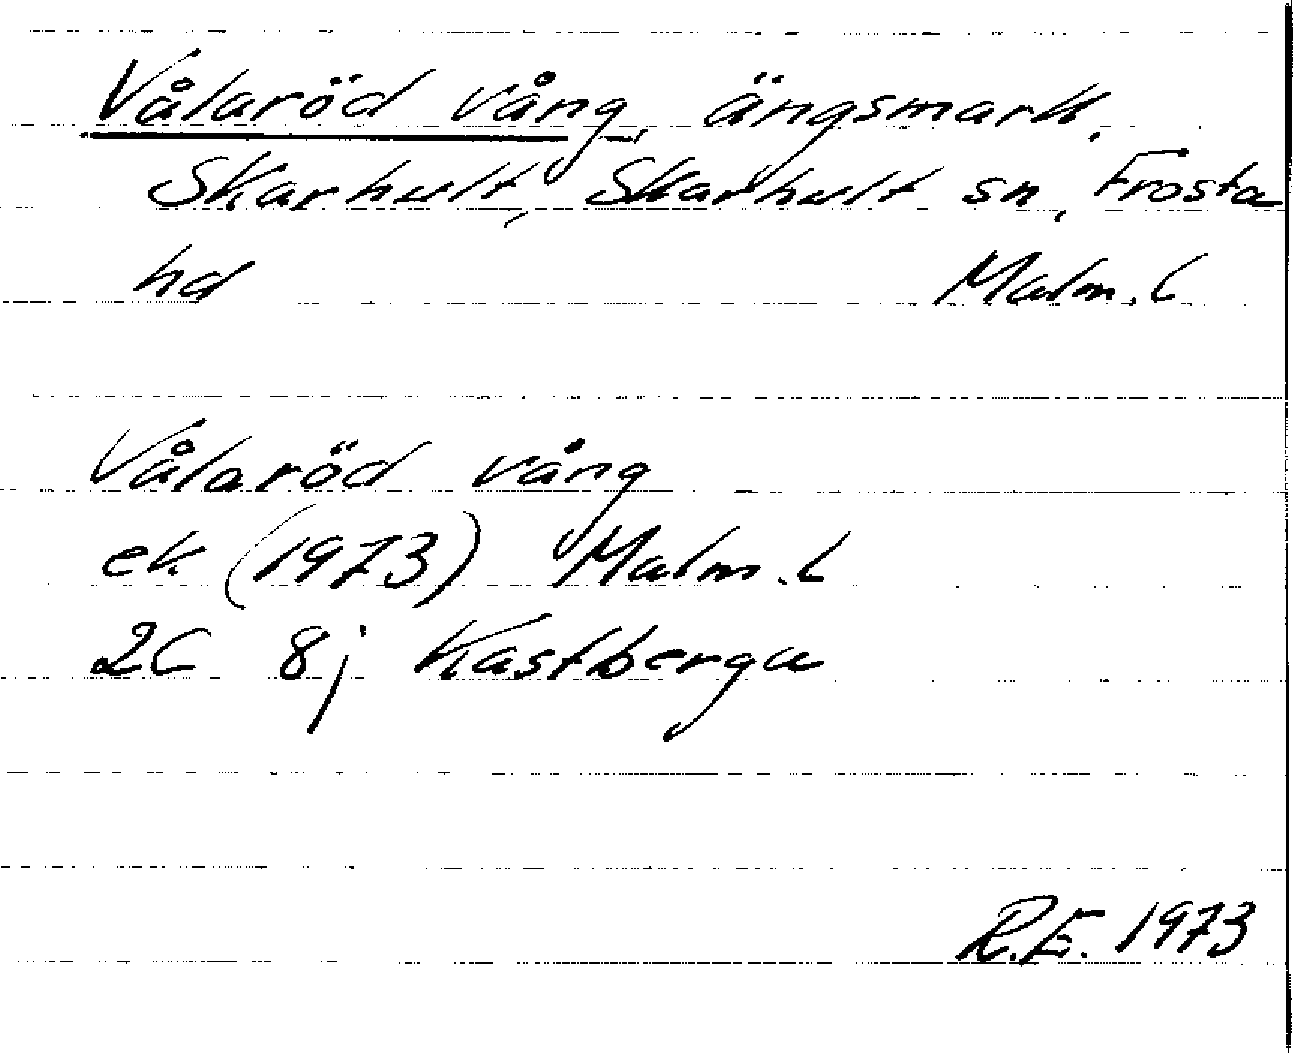 Vålaröd vång, ängsmark,
Skarhult, Skarhult sn, Frosta
hd Malm. l
Vålaröd vång
ek (1973) Malm. l
2C 8j Kastberga
R.E. 1973